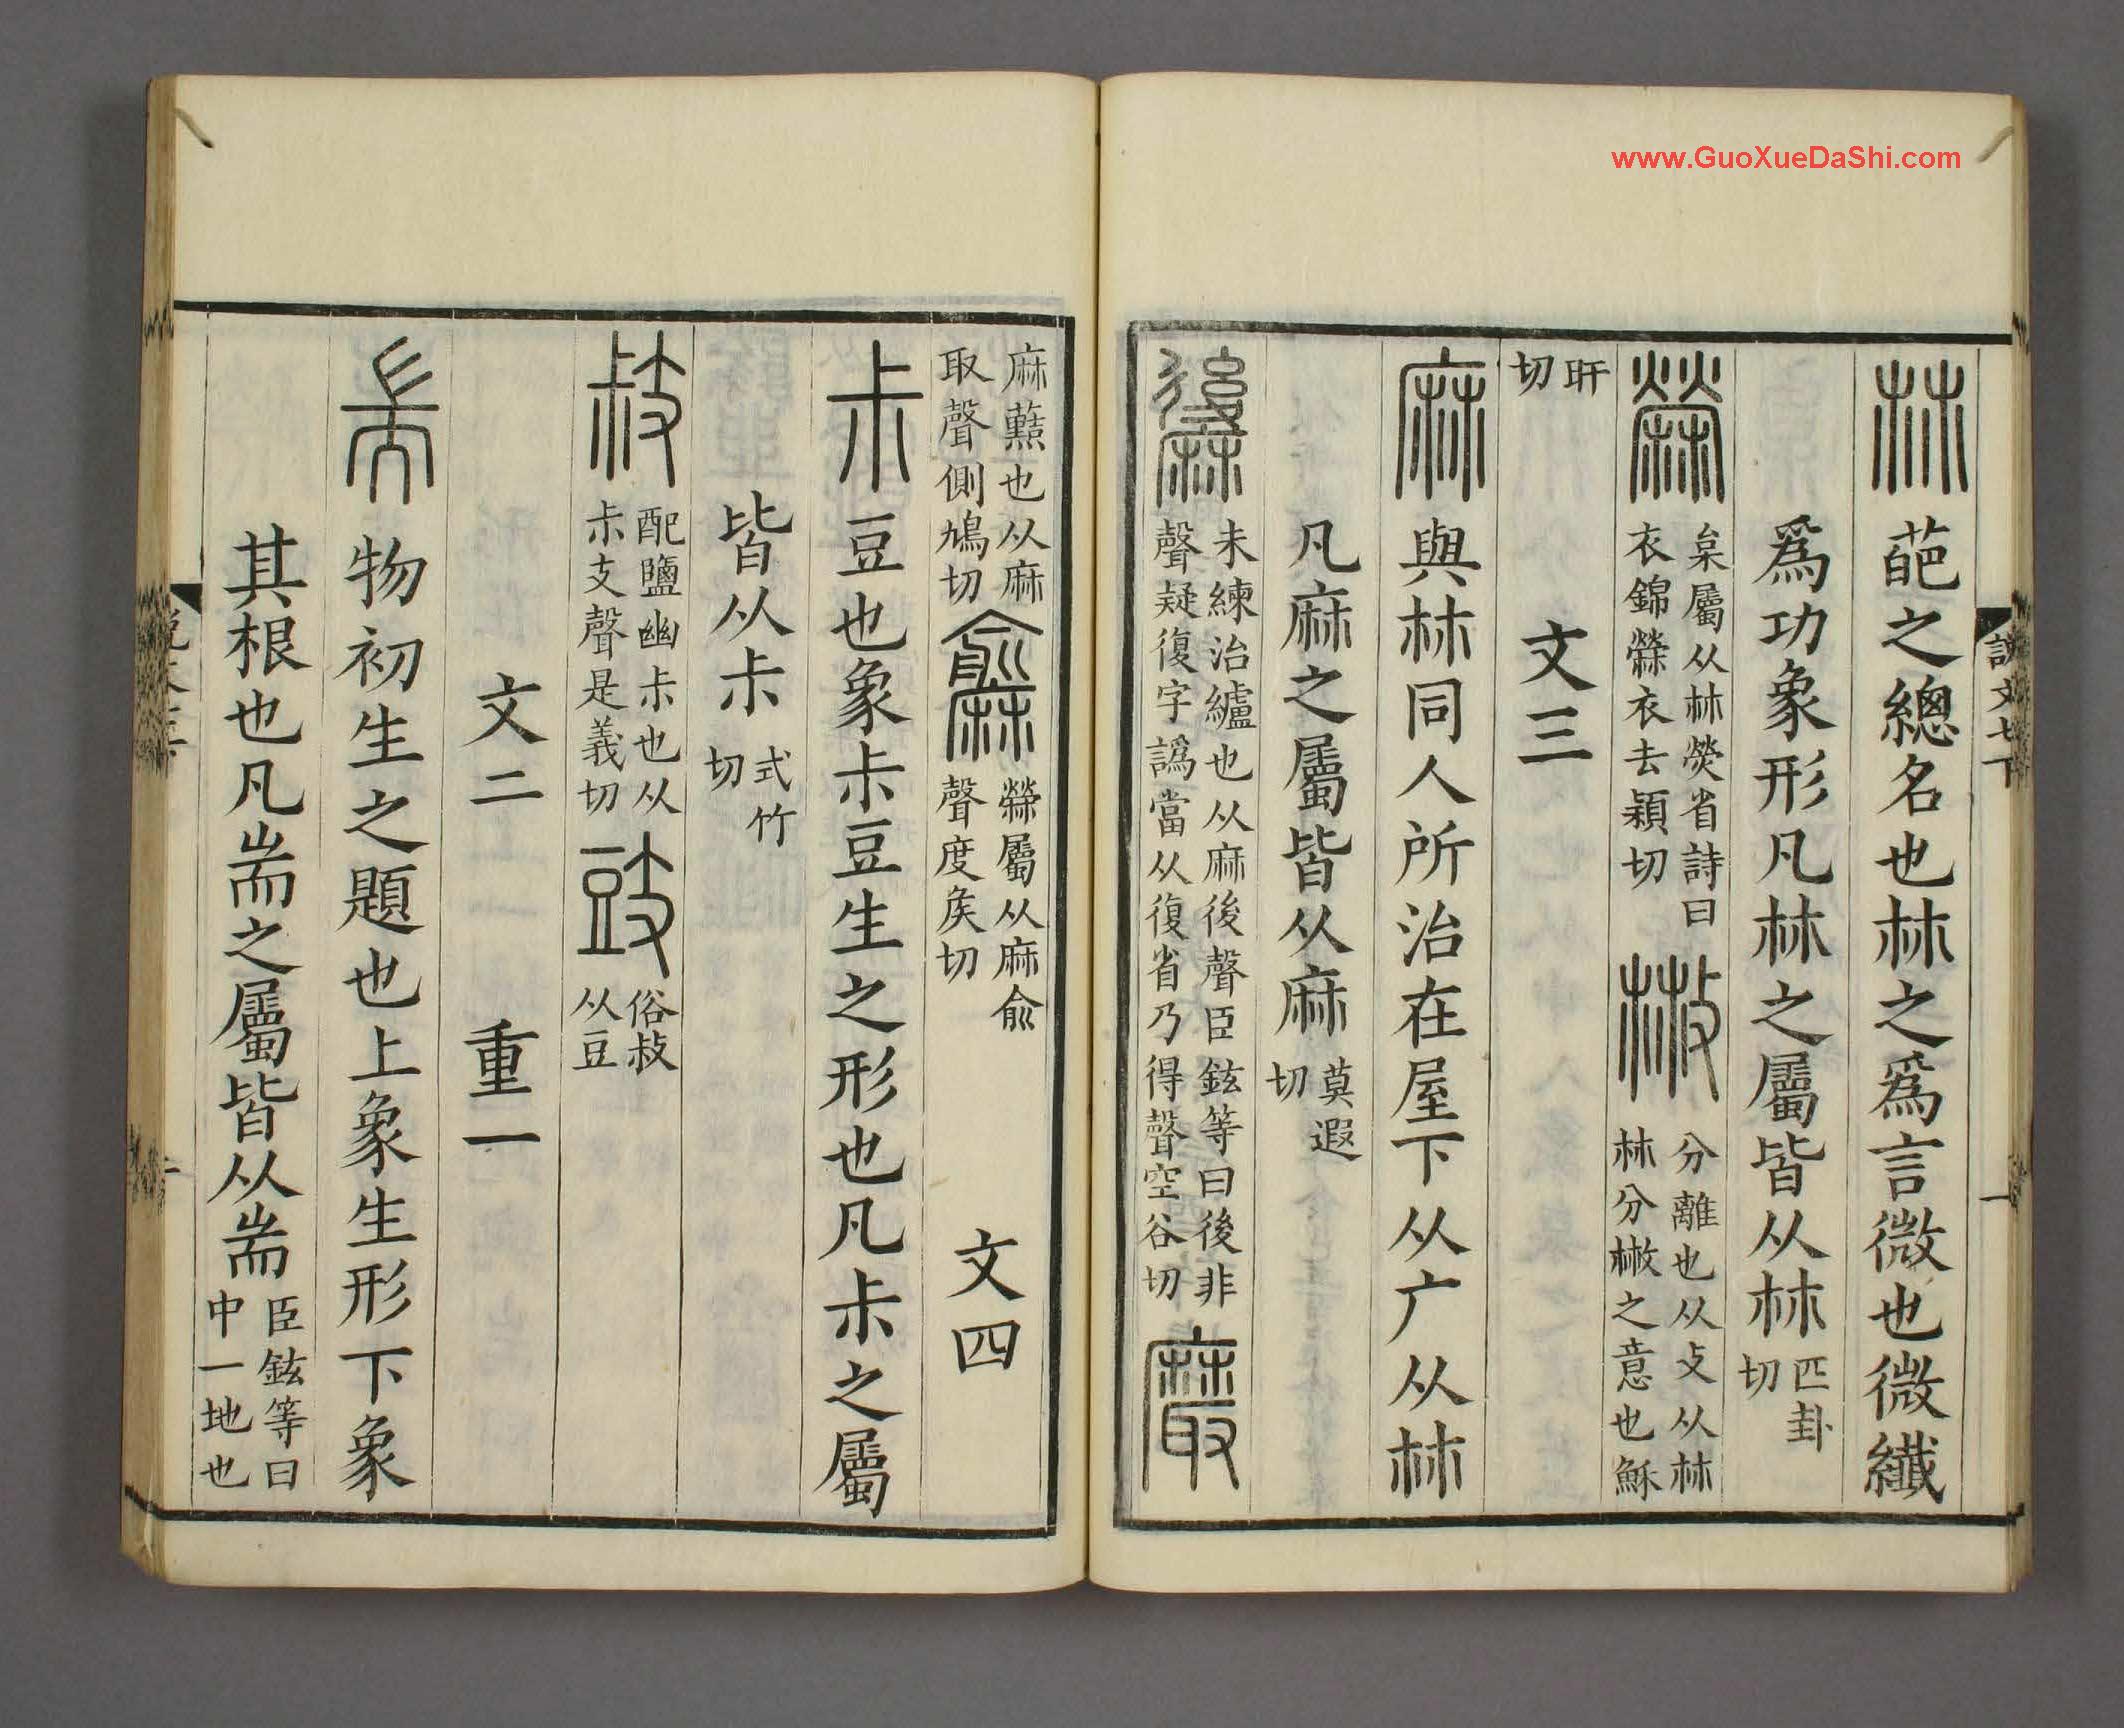 𣏟葩之總名也𣏟之爲言微也微纖
爲功象形凡𣏟之屬皆从𣏟匹卦切
檾枲屬从𣏟熒省詩曰衣錦檾衣去穎切㪔分離也从攴从𣏟𣏟分㪔之意也穌
旰切 文三
麻與𣏟同人所治在屋下从广从𣏟
凡麻之屬皆从麻莫遐切
𪎭未練治纑也从麻後聲臣鉉等曰後非聲疑復字譌當从復省乃得聲空谷切黀
說文七下
一
麻䕸也从麻取聲側鳩切𪎮檾屬从麻俞聲度矦切 文四
尗豆也象尗豆生之形也凡尗之屬
皆从尗式竹切
𢻃配鹽幽尗也从尗支聲是義切豉俗𢻃从豆
文二 重一
耑物初生之題也上象生形下象
其根也凡耑之屬皆从耑臣鉉等曰中一地也
www.GuoXueDaShi.com